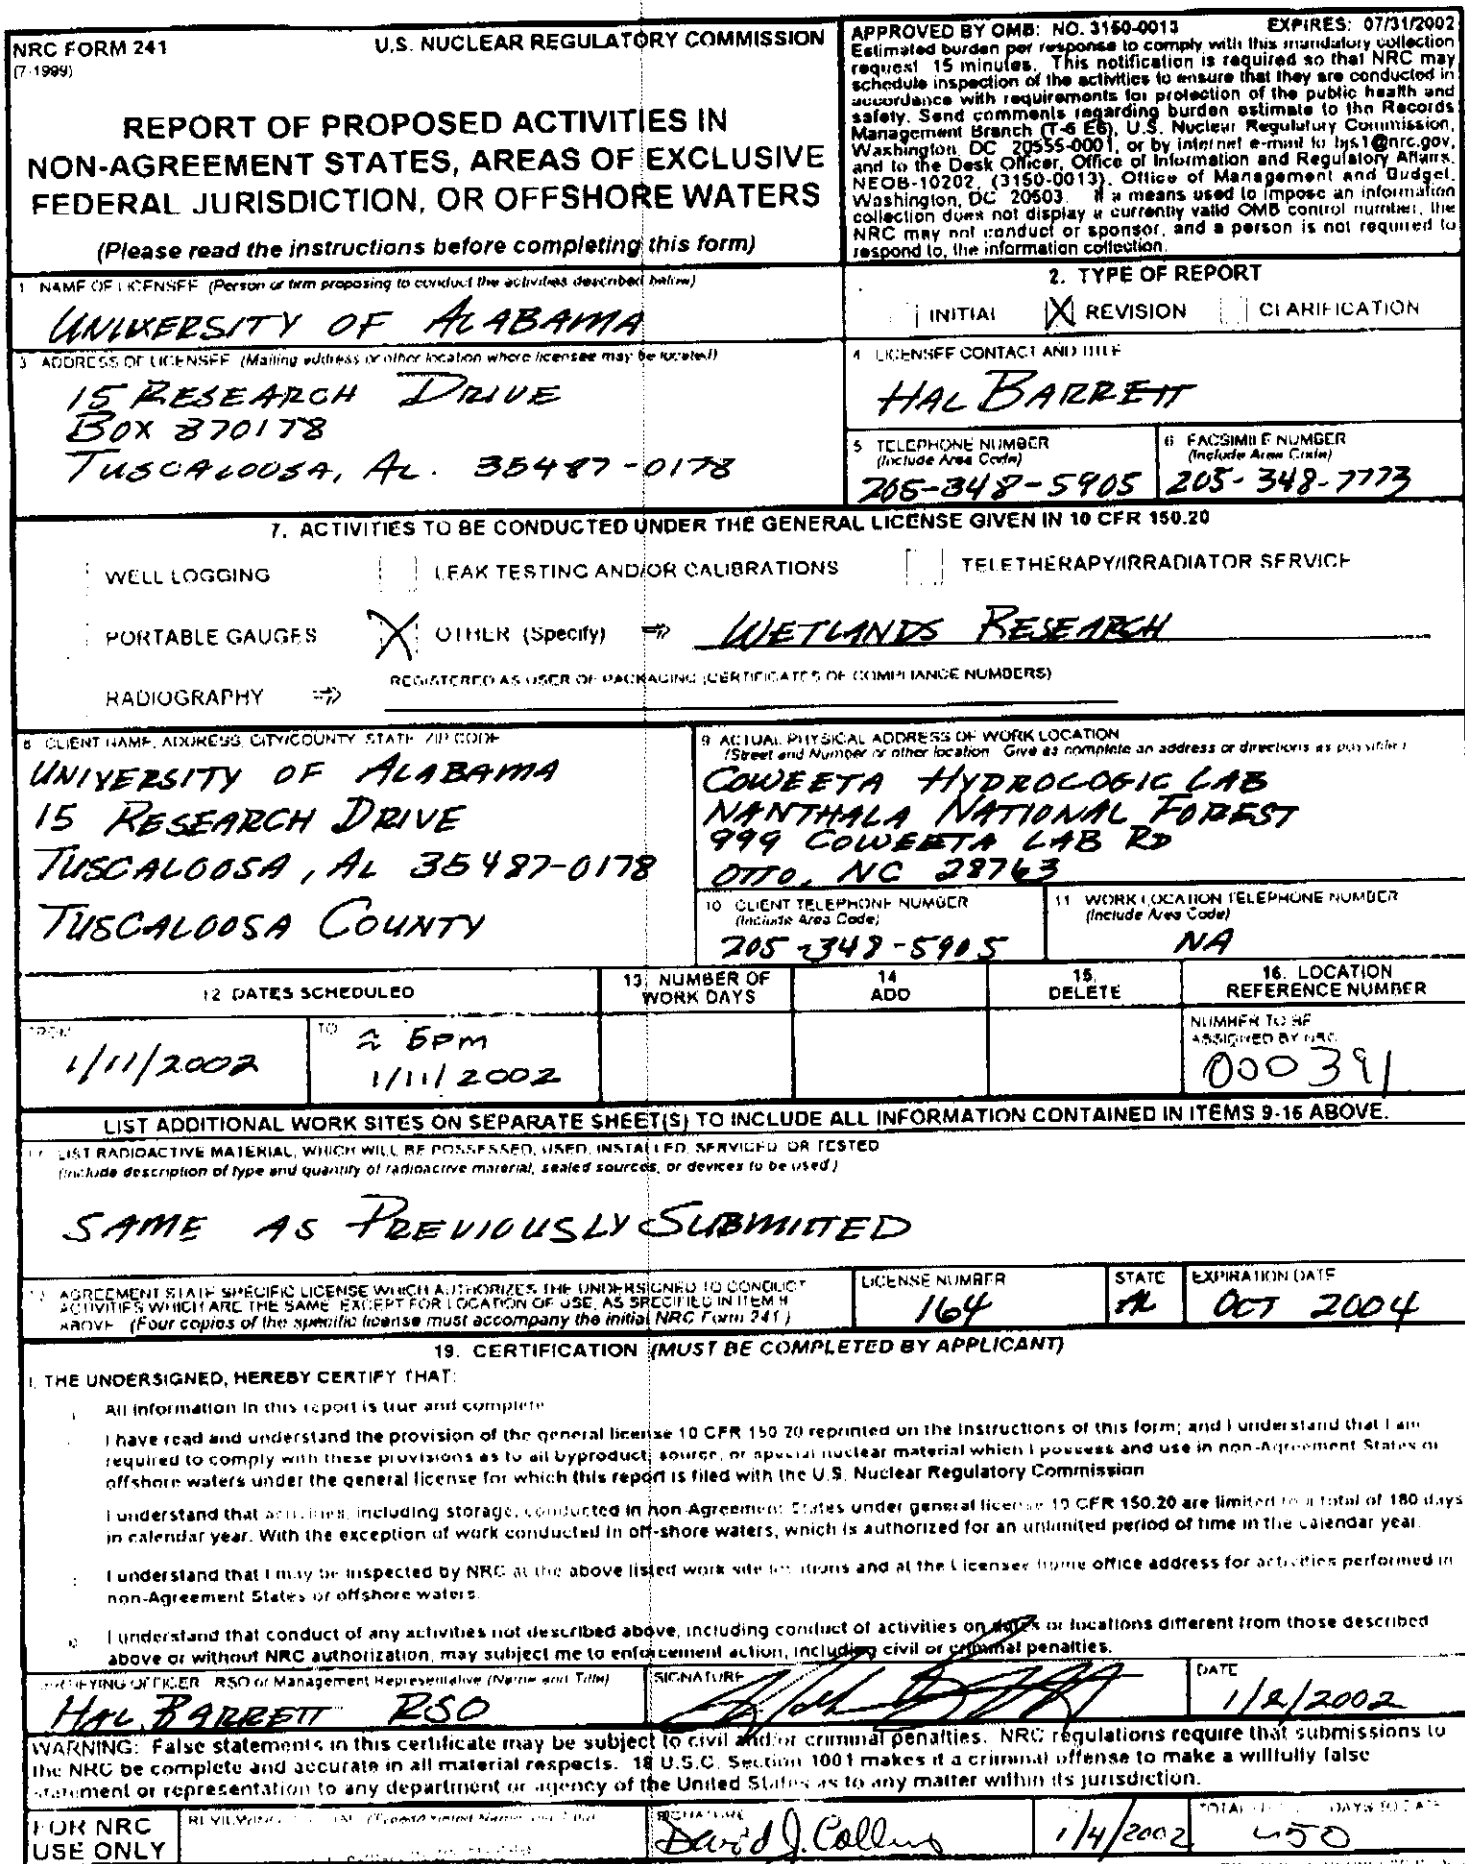 NRC FORM 241
(7-1999)
U.S. NUCLEAR REGULATORY COMMISSION
REPORT OF PROPOSED ACTIVITIES IN
NON-AGREEMENT STATES, AREAS OF EXCLUSIVE
FEDERAL JURISDICTION, OR OFFSHORE WATERS
(Please read the instructions before completing this form)
APPROVED BY OMB: NO. 3150-0013 EXPIRES: 07/31/2002
Estimated burden per response to comply with this mandatory collection
request 15 minutes. This notification is required so that NRC may
schedule inspection of the activities to ensure that they are conducted in
accordance with requirements for protection of the public health and
safety. Send comments regarding burden estimate to the Records
Management Branch (T-6 E6), U.S. Nuclear Regulatory Commission,
Washington, DC 20555-0001, or by internet e-mail to bjs1@nrc.gov,
and to the Desk Officer, Office of Information and Regulatory Affairs,
NEOB-10202, (3150-0013), Office of Management and Budget,
Washington, DC 20503. If a means used to impose an information
collection does not display a currently valid OMB control number, the
NRC may not conduct or sponsor, and a person is not required to
respond to, the information collection.
1 NAME OF LICENSEE (Person or firm proposing to conduct the activities described below)
UNIVERSITY OF ALABAMA
2. TYPE OF REPORT
INITIAL X REVISION CLARIFICATION
3 ADDRESS OF LICENSEE (Mailing address or other location where licensee may be located)
15 RESEARCH DRIVE
BOX 870178
TUSCALOOSA, AL. 35487-0178
4 LICENSEE CONTACT AND TITLE
HAL BARRETT
5 TELEPHONE NUMBER
(Include Area Code)
205-348-5905
6 FACSIMILE NUMBER
(Include Area Code)
205-348-7773
7. ACTIVITIES TO BE CONDUCTED UNDER THE GENERAL LICENSE GIVEN IN 10 CFR 150.20
WELL LOGGING LEAK TESTING AND/OR CALIBRATIONS TELETHERAPY/IRRADIATOR SERVICE
PORTABLE GAUGES X OTHER (Specify) ⇒ WETLANDS RESEARCH
RADIOGRAPHY ⇒ REGISTERED AS USER OF PACKAGING (CERTIFICATES OF COMPLIANCE NUMBERS)
8 CLIENT NAME, ADDRESS, CITY/COUNTY, STATE, ZIP CODE
UNIVERSITY OF ALABAMA
15 RESEARCH DRIVE
TUSCALOOSA, AL 35487-0178
TUSCALOOSA COUNTY
9 ACTUAL PHYSICAL ADDRESS OF WORK LOCATION
(Street and Number or other location. Give as complete an address or directions as possible)
COWEETA HYDROLOGIC LAB
NANTHALA NATIONAL FOREST
999 COWEETA LAB RD
OTTO, NC 28763
10 CLIENT TELEPHONE NUMBER
(Include Area Code)
205-348-5905
11 WORK LOCATION TELEPHONE NUMBER
(Include Area Code)
NA
12 DATES SCHEDULED
13. NUMBER OF
WORK DAYS
14
ADD
15.
DELETE
16. LOCATION
REFERENCE NUMBER
FROM
1/11/2002
TO
≈ 5pm
1/11/2002
NUMBER TO BE
ASSIGNED BY NRC
000391
LIST ADDITIONAL WORK SITES ON SEPARATE SHEET(S) TO INCLUDE ALL INFORMATION CONTAINED IN ITEMS 9-16 ABOVE.
17 LIST RADIOACTIVE MATERIAL, WHICH WILL BE POSSESSED, USED, INSTALLED, SERVICED, OR TESTED
(Include description of type and quantity of radioactive material, sealed sources, or devices to be used)
SAME AS PREVIOUSLY SUBMITTED
AGREEMENT STATE SPECIFIC LICENSE WHICH AUTHORIZES THE UNDERSIGNED TO CONDUCT
ACTIVITIES WHICH ARE THE SAME, EXCEPT FOR LOCATION OF USE, AS SPECIFIED IN ITEM 9
ABOVE (Four copies of the specific license must accompany the initial NRC Form 241)
LICENSE NUMBER
164
STATE
AL
EXPIRATION DATE
OCT 2004
19. CERTIFICATION (MUST BE COMPLETED BY APPLICANT)
I, THE UNDERSIGNED, HEREBY CERTIFY THAT:
All information in this report is true and complete
I have read and understand the provision of the general license 10 CFR 150 20 reprinted on the instructions of this form; and I understand that I am
required to comply with these provisions as to all byproduct, source, or special nuclear material which I possess and use in non-Agreement States or
offshore waters under the general license for which this report is filed with the U.S. Nuclear Regulatory Commission
I understand that activities, including storage, conducted in non-Agreement States under general license 10 CFR 150.20 are limited to a total of 180 days
in calendar year. With the exception of work conducted in off-shore waters, which is authorized for an unlimited period of time in the calendar year.
I understand that I may be inspected by NRC at the above listed work site locations and at the Licensee home office address for activities performed in
non-Agreement States or offshore waters.
I understand that conduct of any activities not described above, including conduct of activities on dates or locations different from those described
above or without NRC authorization, may subject me to enforcement action, including civil or criminal penalties.
CERTIFYING OFFICER RSO or Management Representative (Name and Title)
HAL BARRETT RSO
SIGNATURE
DATE
1/2/2002
WARNING: False statements in this certificate may be subject to civil and/or criminal penalties. NRC regulations require that submissions to
the NRC be complete and accurate in all material respects. 18 U.S.C. Section 1001 makes it a criminal offense to make a willfully false
statement or representation to any department or agency of the United States as to any matter within its jurisdiction.
FOR NRC
USE ONLY
SIGNATURE
David J. Collins
1/4/2002
TOTAL DAYS TO DATE